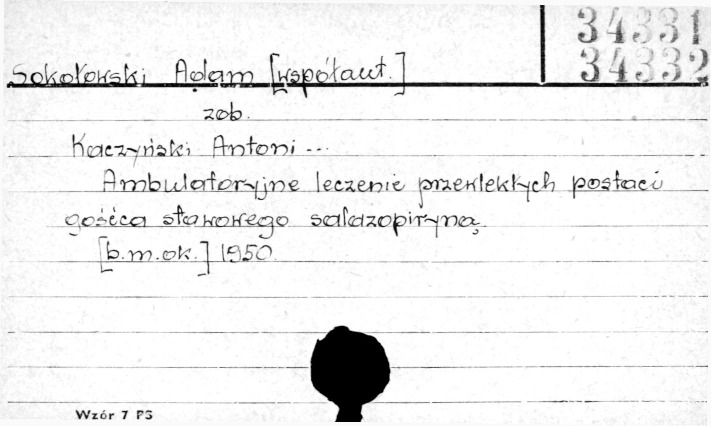 34331
34332
Sokołowski Adam [współaut.]
zob.
Kaczyński Antoni ...
Ambulatoryjne leczenie przewlekłych postaci
gośćca stawowego salazopiryną.
[b.m.ok.] 1950.
Wzór 7 PS